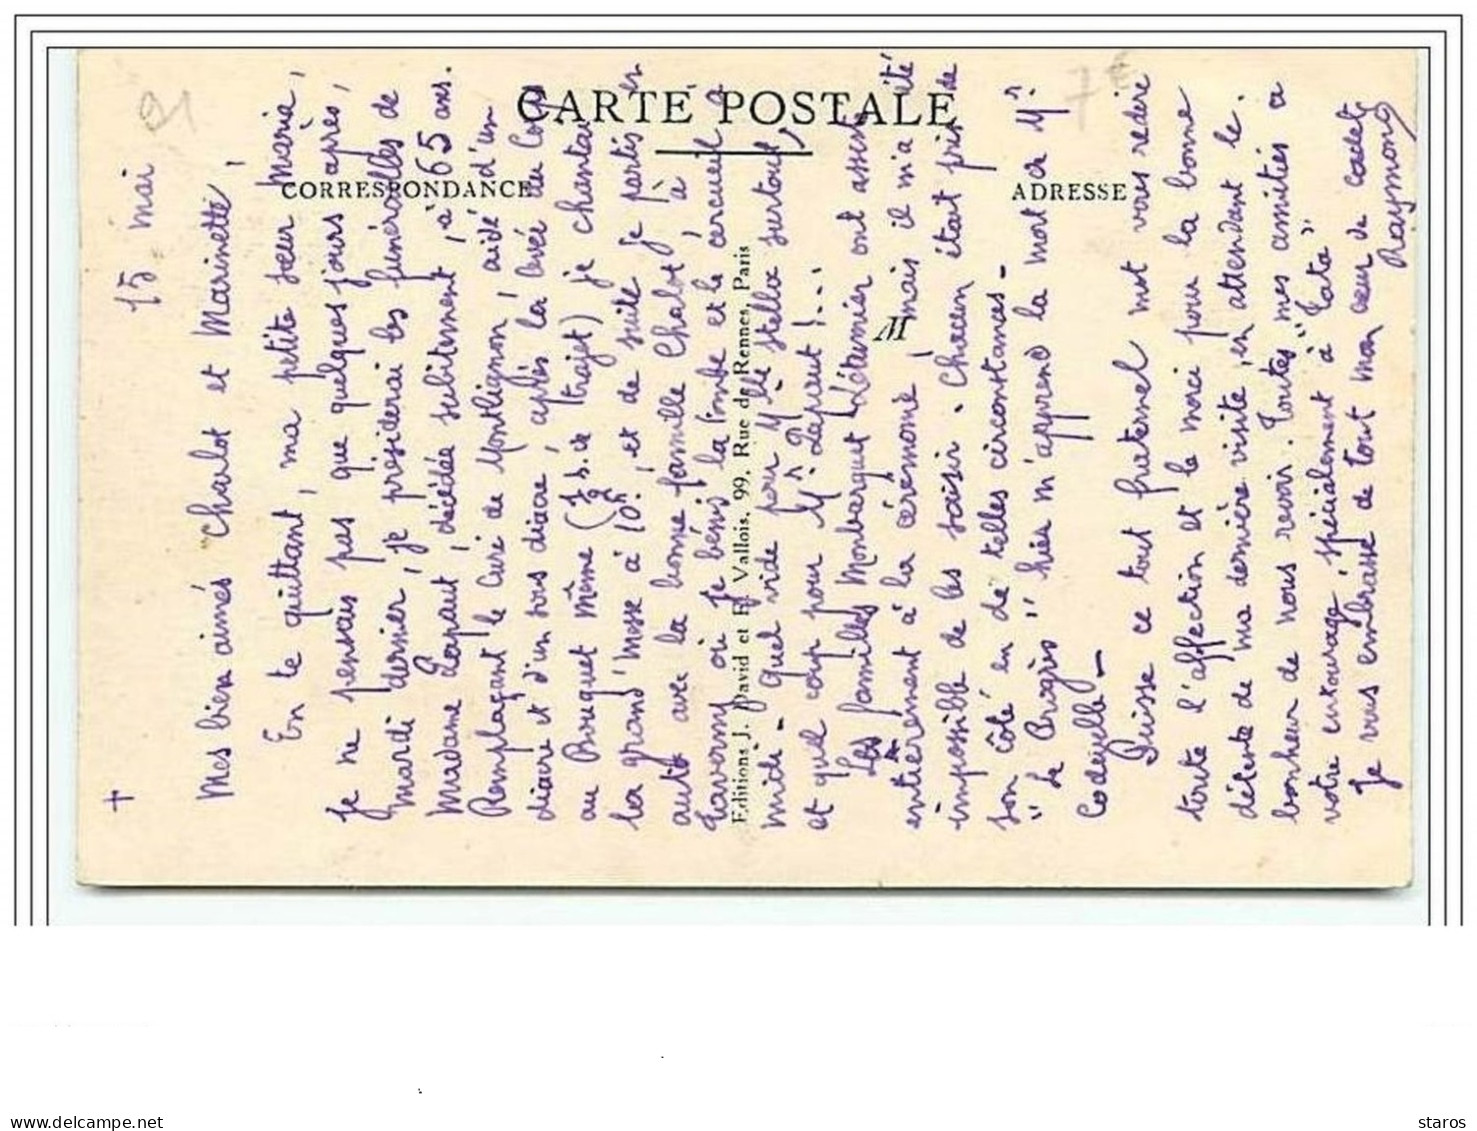 CARTE POSTALE
CORRESPONDANCE
ADRESSE
M
Editions J. David et E. Vallois, 99, Rue de Rennes, Paris
7€
15 mai
Mes bien aimés Charlot et Marinette,
En te quittant, ma petite sœur Maria,
je ne pensais pas que quelques jours après,
mardi dernier, je présiderai les funérailles de
Madame Lapaut, décédée subitement, à 65 ans.
Remplaçant le Curé de Montlignon, aidé d'un
diacre et d'un sous diacre, après la levée du Corps
au Bouquet même (1/2 h. de trajet) je chantai
la grand'Messe à 10h, et de suite je partis en
auto avec la bonne famille Chalot, à
Taverny où je bénis la tombe et le cercueil à
midi - quel vide pour Mlle Stella surtout,
et quel coup pour Mr Lapaut !...
Les familles Monbarquet Létumier ont assisté
entièrement à la cérémonie, mais il m'a été
impossible de les saisir. Chacun était pris de
son côté en de telles circonstances -
"Le Progrès" hier m'apprend la mort de Mr
Codeville -
Puisse ce tout fraternel mot vous redire
toute l'affection et le merci pour la bonne
détente de ma dernière visite, en attendant le
bonheur de nous revoir. Toutes mes amitiés à
votre entourage, spécialement à "Tata"
Je vous embrasse de tout mon cœur de cadet
Raymond
staros
delcampe.net